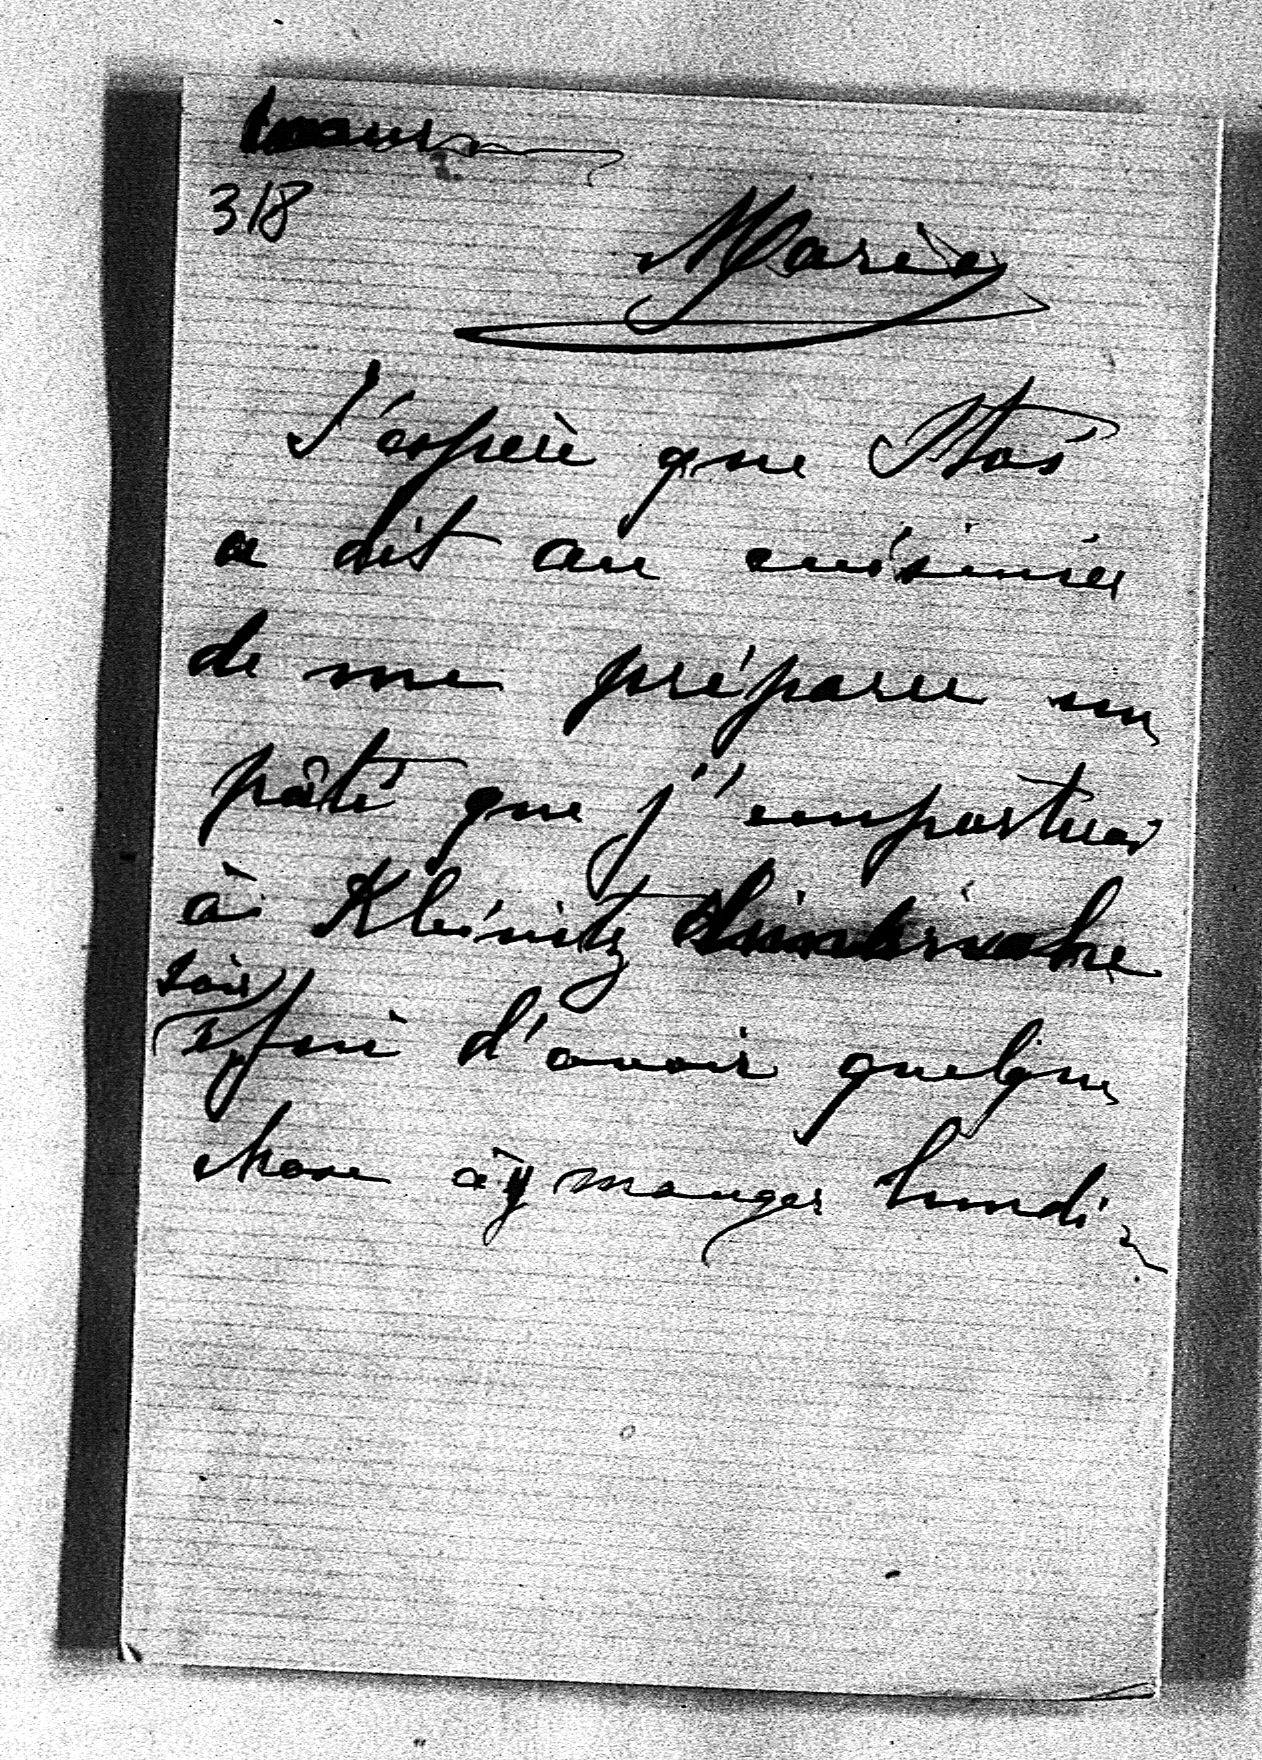 318
Marie
J'espère que Stas
a dit au cuisinier
de me préparer un
pâté que j'emporterai
à Kleinitz dimanche
soir
afin d'avoir quelque
chose à y manger lundi